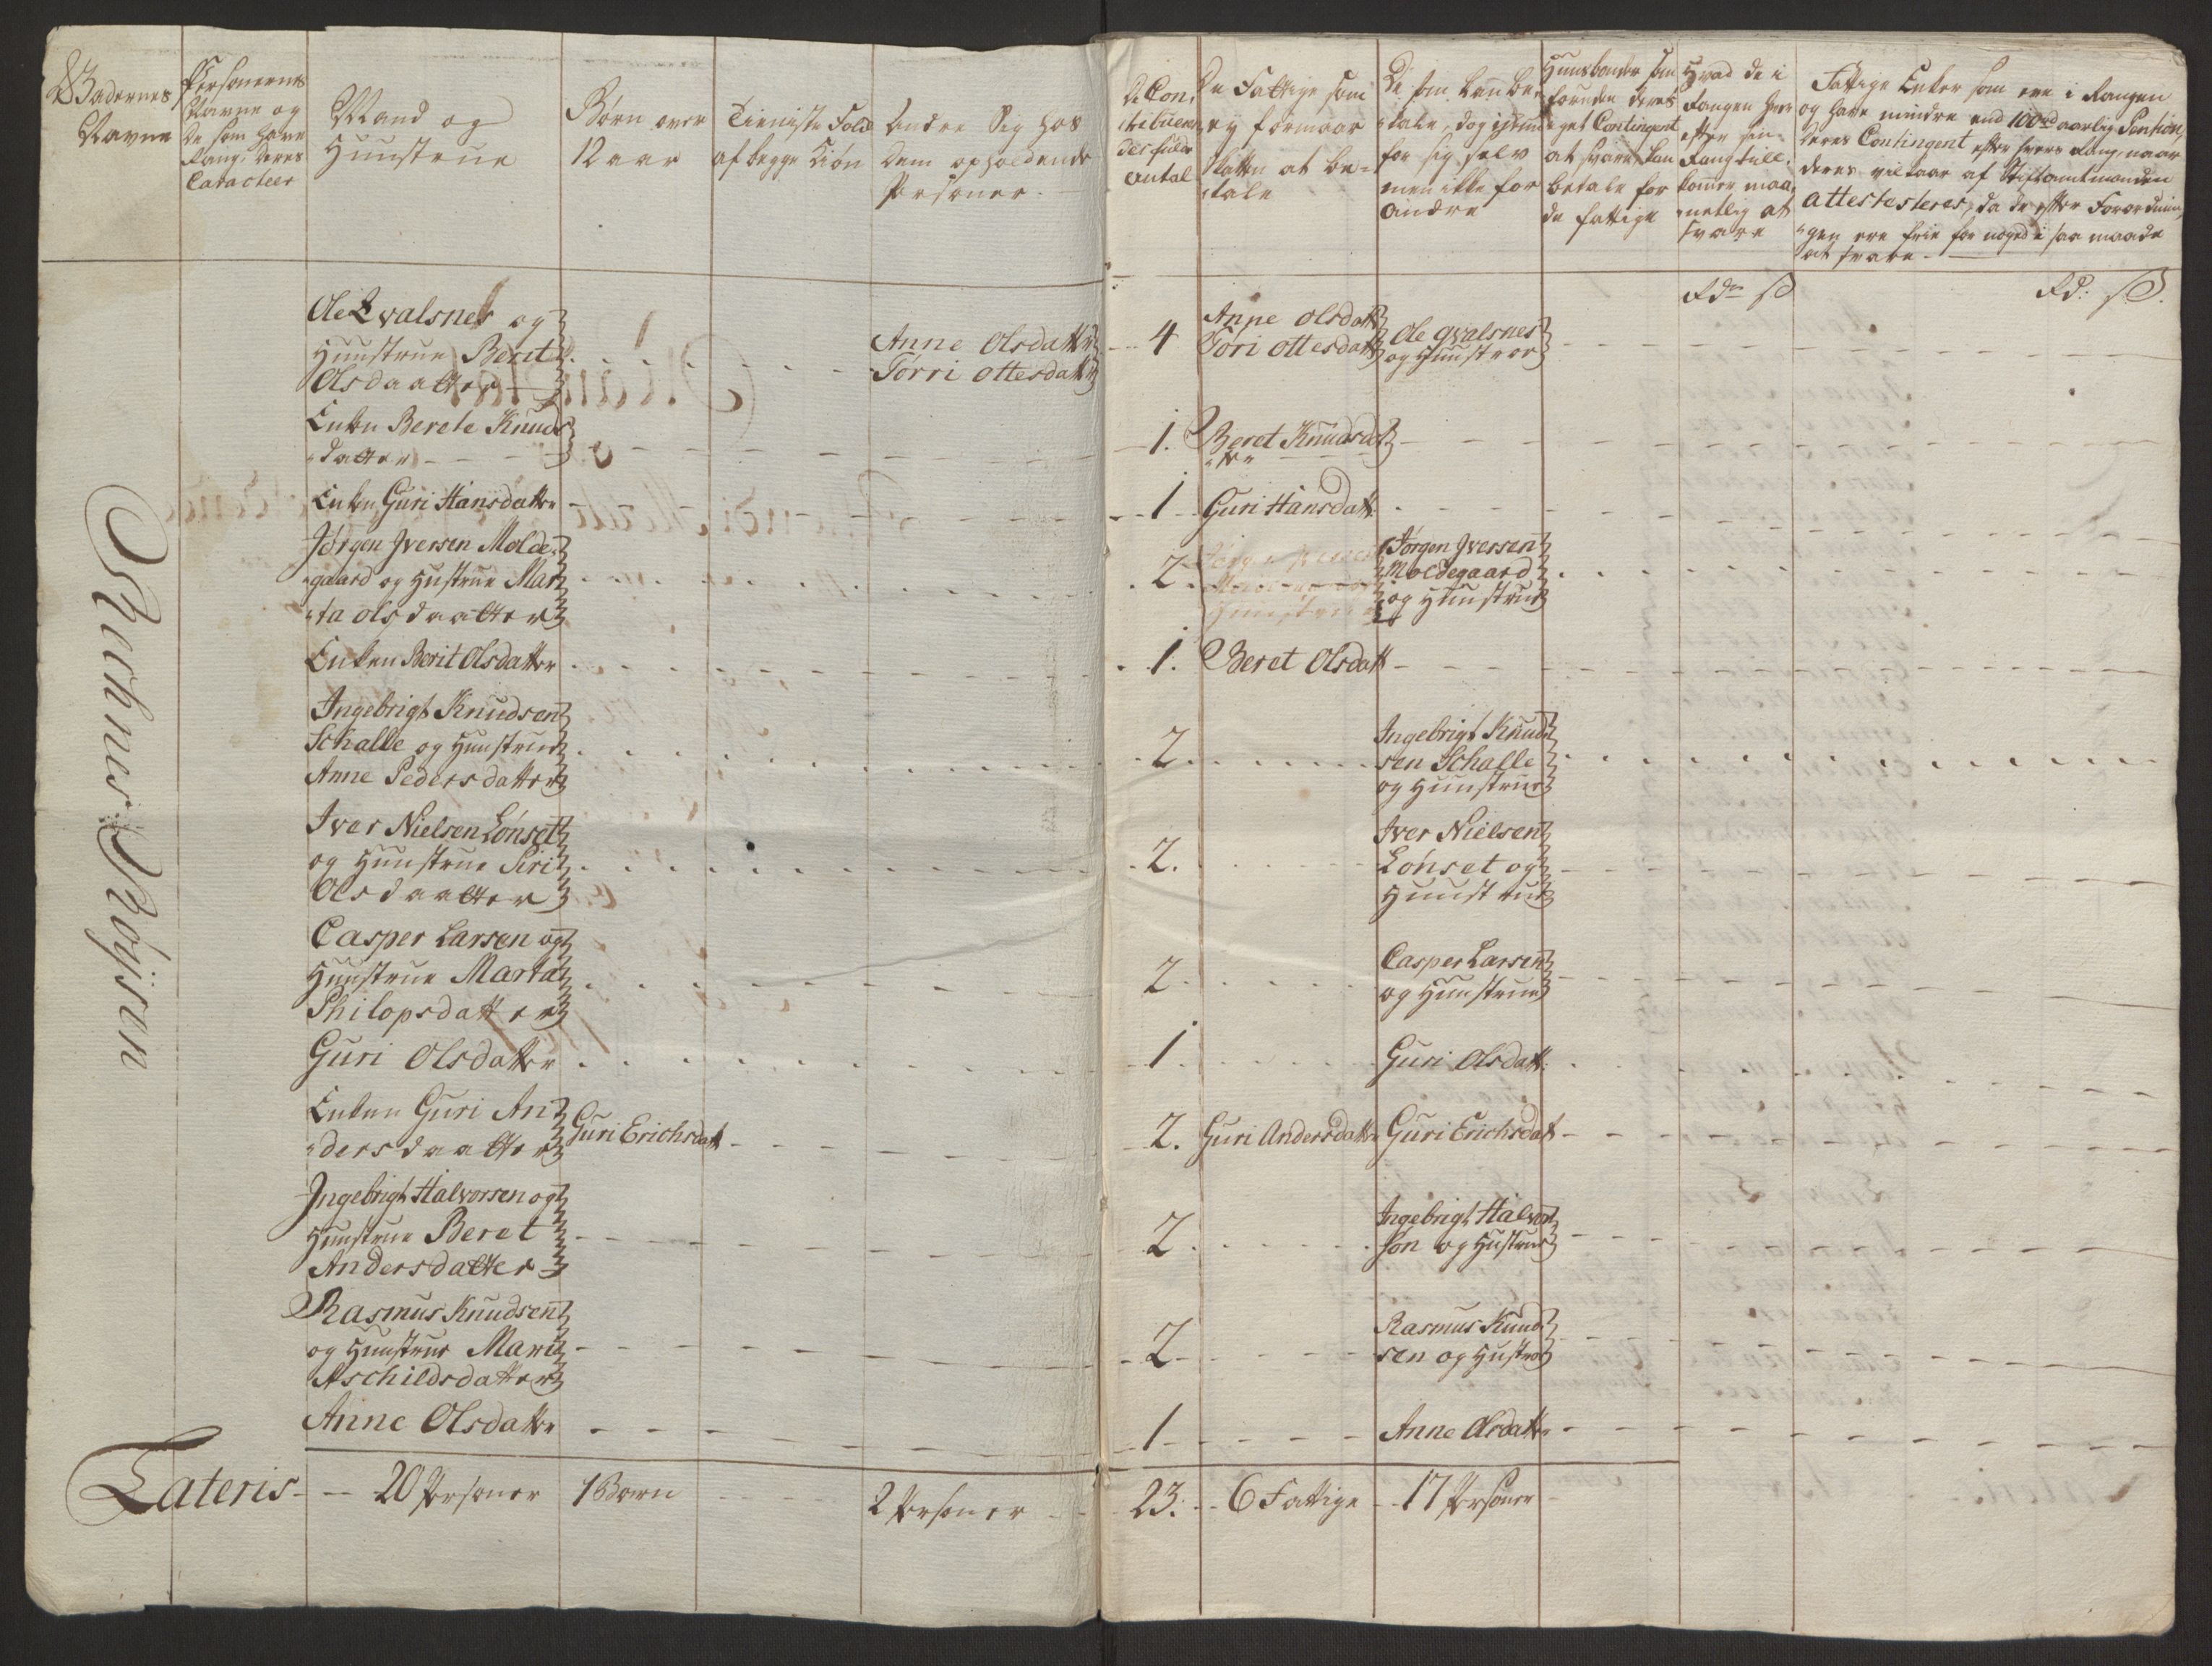 Gadernes
Navne
Personernes
Navne og
de som have
Rang, deres
Caracteer
Mand og
Hunstrue
Børn over
12 aar
Tieniste Folk
af begge Kiøn
Andre Sig hos
dem opholdende
Personer
De Con,
tribueren
des fulde
Antal
De Fattige som
ey formaar
Skatten at be-
tale
De som kan be-
tale, dog ickun
for sig selv
men ikke for
Andre
Huusbonder som
foruden deres
eget Contingent
at svare, kan
betale for
de fattige
Hvad de i
Rangen hver
efter sin
Rang till.
kommer maa,
netlig at
svare
Fattige Enker som ere i Rangen
og have mindre end 100 rd aarlig Pention,
deres Contingent efter hvers Rang, naar
deres vilkaar af Stiftamtmanden
attesteres, da de efter Forordnin,
gen ere frie for noged i saa maade
at svare
Rdr ß
Rd: ß.
Ole Qvalsnes og
Hunstrue Berit
Olsdaatter
Anne Olsdatter
Torri Ottesdatter
4
Anne Olsdatt
Tori Ottesdatt
Ole Qvalsnes
og Hunstroe
Enken Berete Knuds
datter
1.
Beret Knudsdat
ter
Enken Guri Hansdatter
1
Guri Hansdatt:
Jørgen Iversen Molde,
gaard og Hustrue Mar
ta Olsdaatter
2
Jørgen Iversen
Moldegaard
og Hunstrue
Enken Berit Olsdatter
1.
Beret Olsdatt
Ingebrigt Knudsen
Schalle og Hunstrue
Anne Pedersdatter
2
Ingebrigt Knud
sen Schalle
og Hunstrue
Iver Nielsen Lønset
og Hunstrue Siri
Olsdaatter
2.
Iver Nielsen
Lønset og
Hunstrue
Casper Larsen og
Hunstrue Marta
Philopsdatter
2
Casper Larsen
og Hunstrue
Guri Olsdatter
1
Guri Olsdatt:
Enken Guri An
dersdaatter
Guri Erichsdatt
2.
Guri Andersdatter
Guri Erichsdat
Ingebrigt Halvorsen og
Hunstrue Beret
Andersdatter
2
Ingebrigt Halvor
søn og Hustrue
Rasmus Knudsen
og Hunstrue Marit
Aschildsdatter
2
Rasmus Knud
sen og Hustroe
Anne Olsdatter
1
Anne Olsdatter
Lateris
20 Personer
1 Børn
2 Personer
23.
6 Fattige
17 Personer